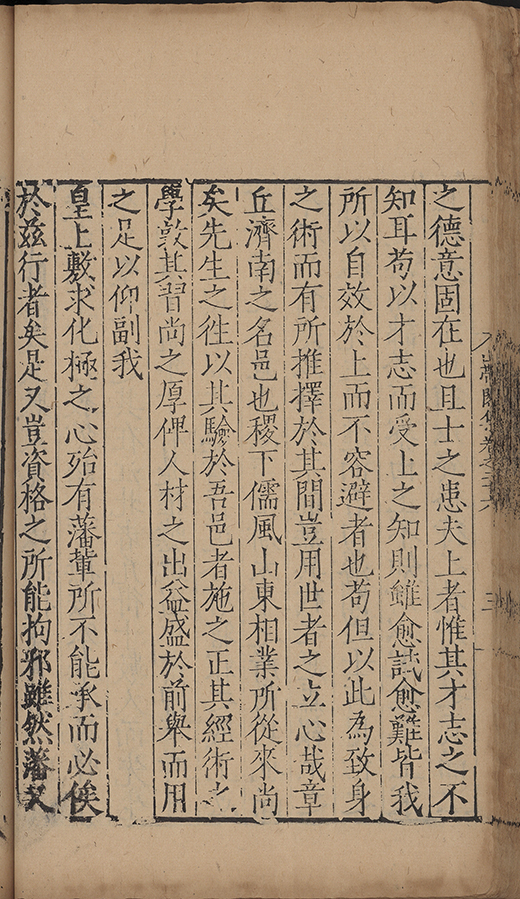 之德意固在也且士之患夫上者惟其才志之不
知耳苟以才志而受上之知則雖愈試愈難皆我
所以自效於上而不容避者也苟但以此為致身
之術而有所推擇於其間豈用世者之立心哉章
丘濟南之名邑也稷下儒風山東相業所從來尚
矣先生之徃以其驗於吾邑者施之正其經術之
學敦其習尚之厚俾人材之出益盛於前舉而用
之足以仰副我
皇上敷求化極之心殆有藩輩所不能承而必俟
於茲行者矣是又豈資格之所能拘邪雖然藩又